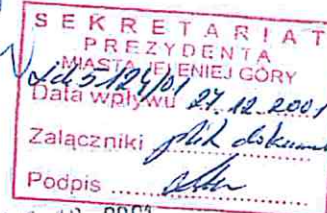 SEKRETARIAT
PREZYDENTA
MIASTA JELENIEJ GÓRY
5124/01
Data wpływu 27.12.2001
Załączniki plik
Podpis ..........
2001